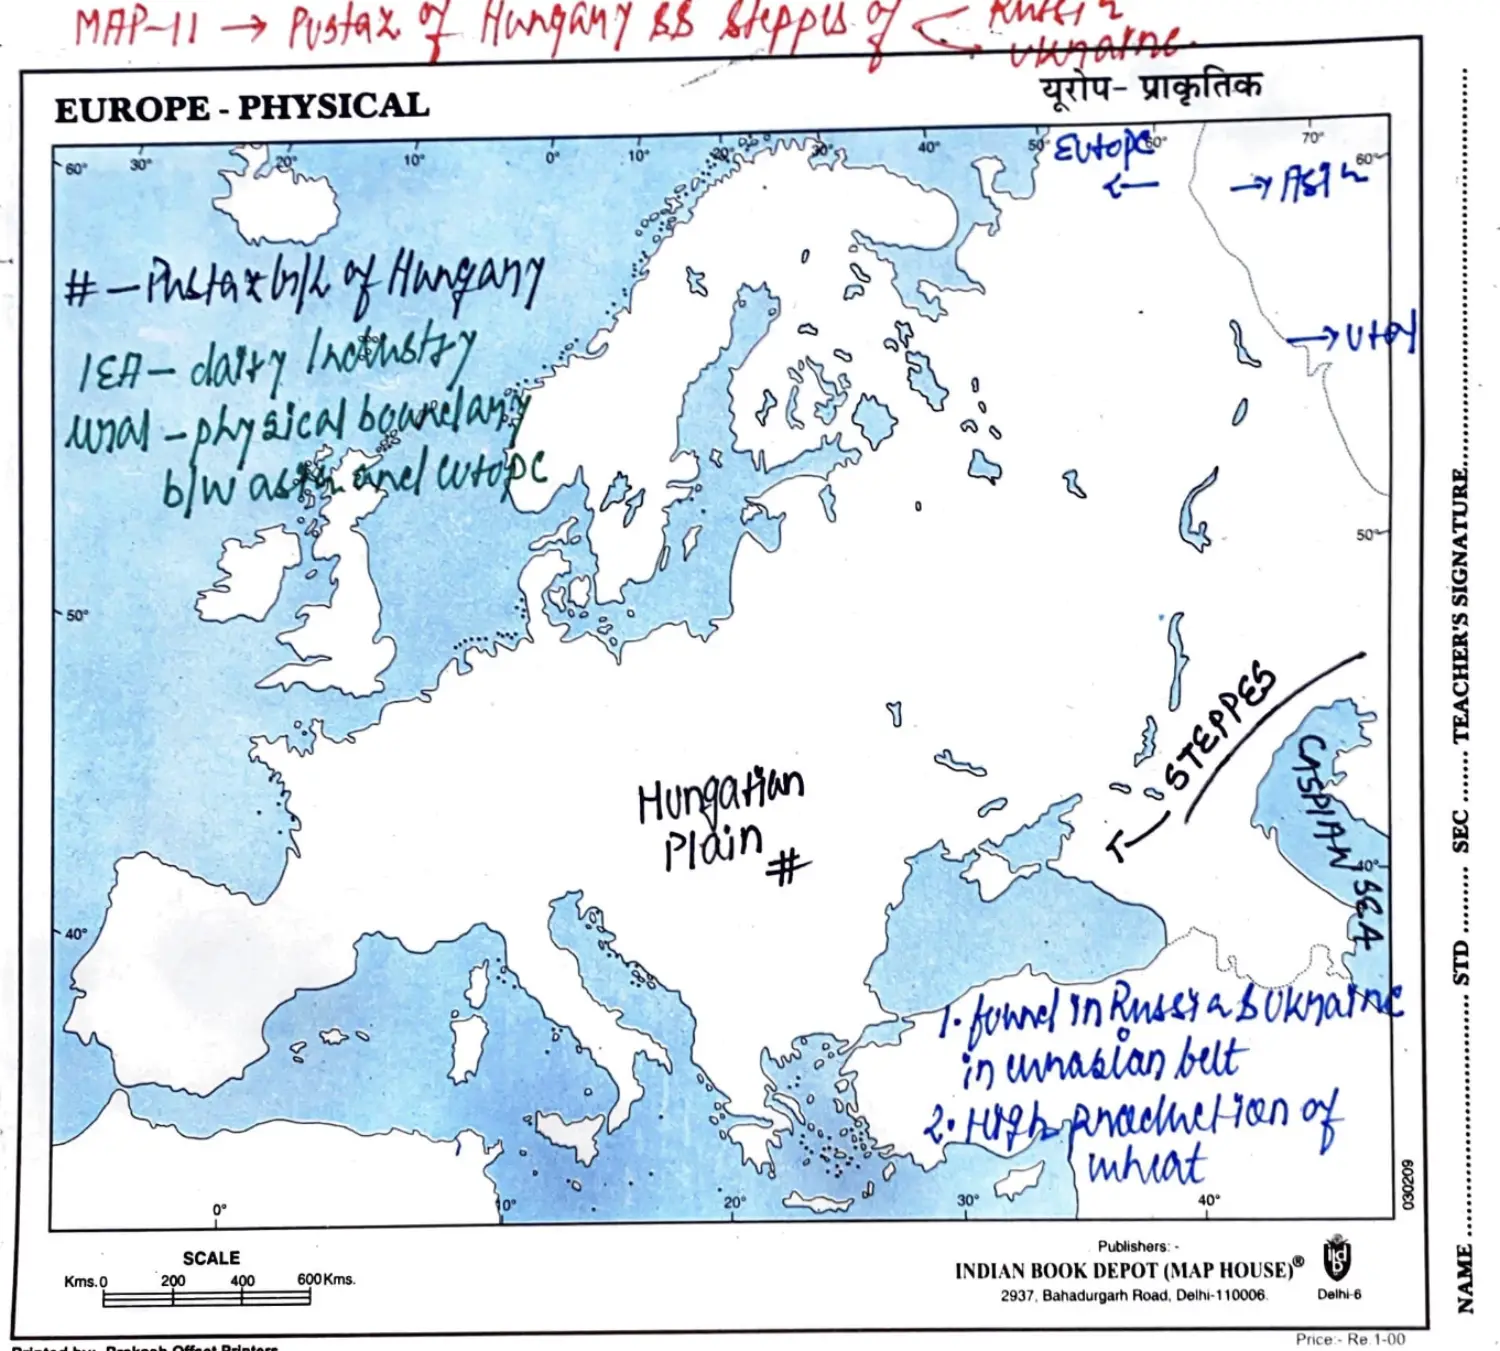 MAP-11 → Pustaz of Hungary & Steppes of Russia
Ukraine.
EUROPE - PHYSICAL
यूरोप- प्राकृतिक
60° 30° 20° 10° 0° 10° 20° 30° 40° 50° 60° 70°
60°
Europe
← → Asia
# - Pustaz of Hungary
IEA - dairy Industry
Ural - physical boundary
b/w asia and europe
→ Ural
50°
50°
STEPPES
CASPIAN SEA
Hungarian
Plain #
40°
40°
1. found in Russia & Ukraine
in eurasian belt
2. High production of
wheat
0° 10° 20° 30° 40°
030209
SCALE
Kms.0 200 400 600 Kms.
Publishers: -
INDIAN BOOK DEPOT (MAP HOUSE)®
2937, Bahadurgarh Road, Delhi-110006.
ibd
Delhi-6
Price:- Re.1-00
Printed by: Prakash Offset Printers
NAME STD SEC TEACHER'S SIGNATURE